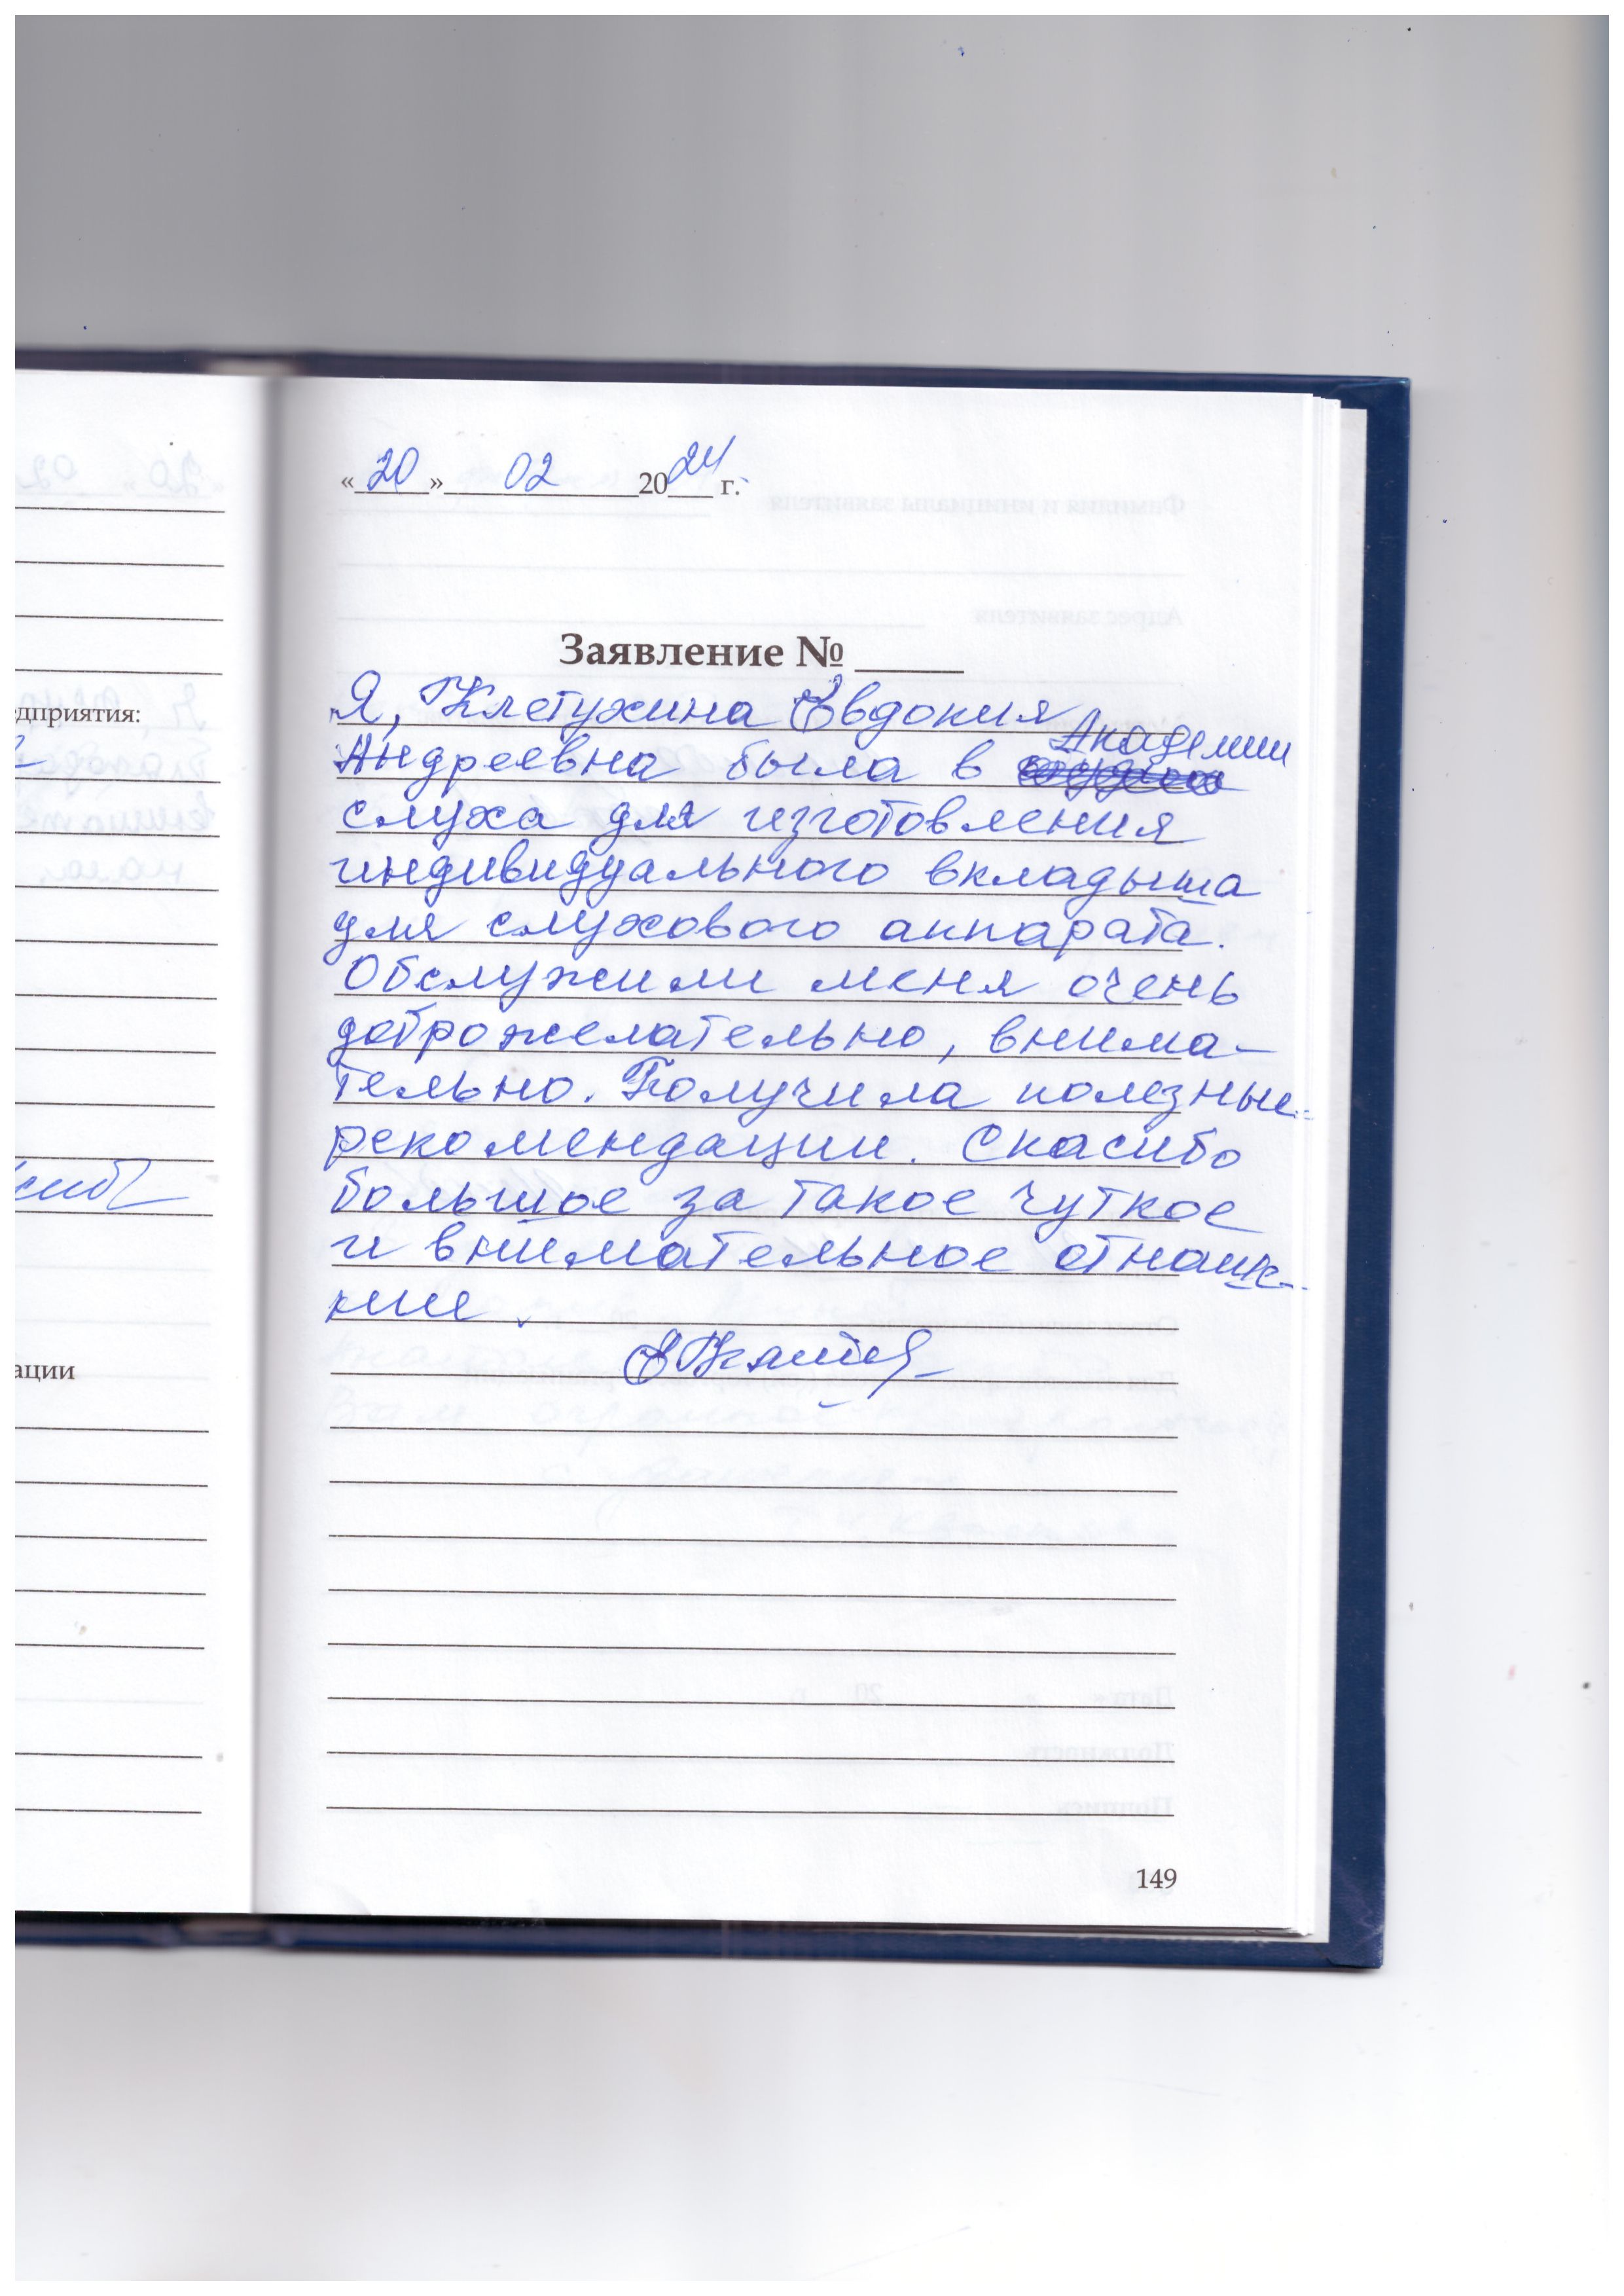 «20» 02 2024 г.
Заявление № 
Я, Клетухина Евдокия
Андреевна была в Академии
слуха для изготовления
индивидуального вкладыша
для слухового аппарата.
Обслужили меня очень
доброжелательно, внима-
тельно. Получила полезные
рекомендации. Спасибо
большое за такое чуткое
и внимательное отноше-
нии.
149
едприятия:
ации